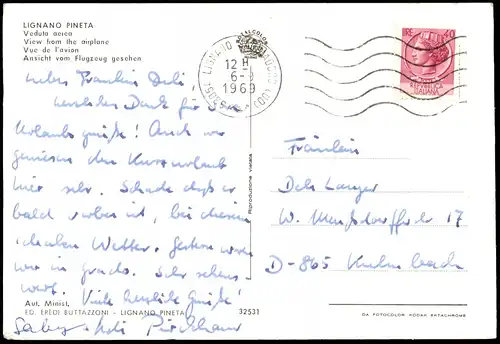 LIGNANO PINETA
Veduta aerea
View from the airplane
Vue de l'avion
Ansicht vom Flugzeug gesehen
Liebes Fräulein Deli,
herzlichen Dank für
Urlaubsgrüße! Auch wir
genießen den Kurzurlaub
hier sehr. Schade daß er
bald vorbei ist, bei diesem
idealen Wetter. Gestern waren
wir in Grado. Sehr sehens
wert. Viele herzliche Grüße
Aut. Minist.
ED. EREDI BUTTAZZONI - LIGNANO PINETA
32531
Riproduzione vietata
LIGNANO
12 H
6-9
1969
LIRE 40
REPVBBLICA
ITALIANA
Fräulein
Deli Langer
17
D-865 Kulmbach
DA FOTOCOLOR KODAK EKTACHROME